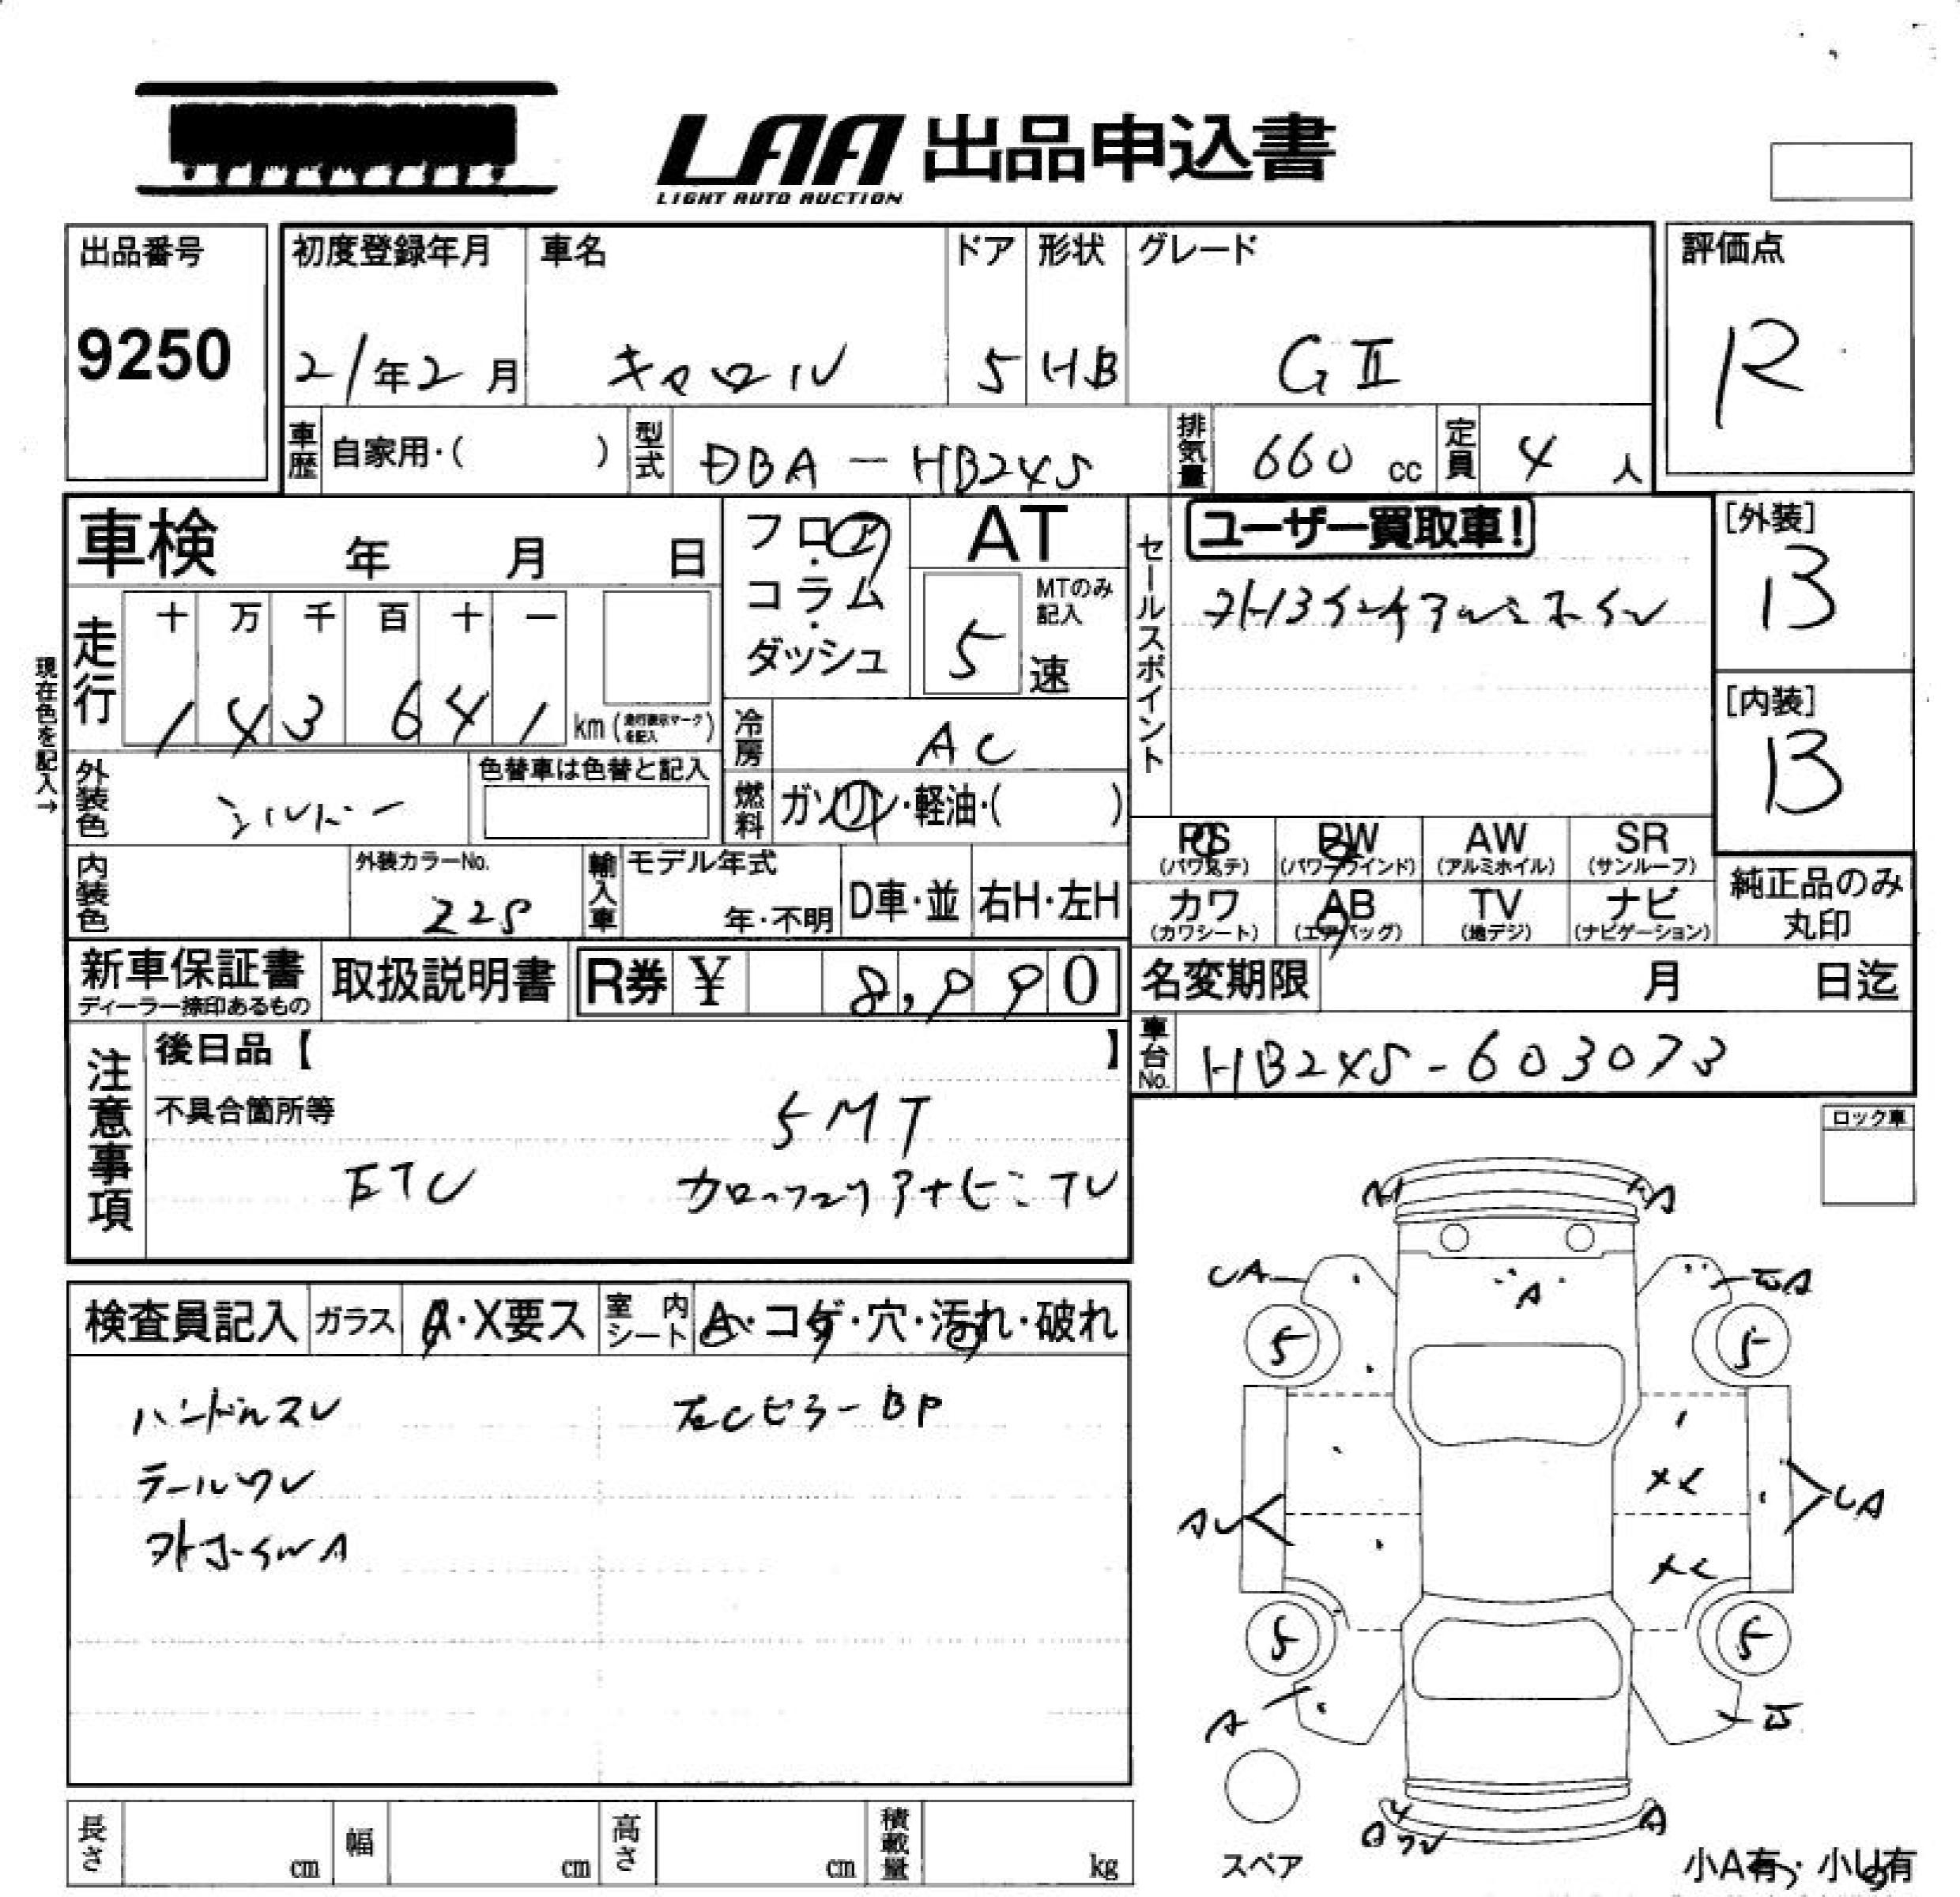 LAA 出品申込書
LIGHT AUTO AUCTION
出品番号
9250
初度登録年月
21年2月
車名
キャロル
ドア
5
形状
HB
グレード
GⅡ
評価点
R
車歴 自家用・( )
型式 DBA-HB24S
排気量 660 cc
定員 4 人
車検 年 月 日
フロア・コラム・ダッシュ
AT
MTのみ記入
5 速
セールスポイント
ユーザー買取車!
[外装]
B
[内装]
B
現在色を記入→
走行
十 万 千 百 十 一
1 4 3 6 4 1 km (走行表示マークを記入)
冷房 AC
燃料 ガソリン・軽油・( )
外装色 シルバー
色替車は色替と記入
内装色
外装カラーNo.
Z2S
輸入車
モデル年式
年・不明
D車・並
右H・左H
PS (パワステ)
PW (パワーウインド)
AW (アルミホイル)
SR (サンルーフ)
カワ (カワシート)
AB (エアバッグ)
TV (地デジ)
ナビ (ナビゲーション)
純正品のみ丸印
新車保証書
ディーラー捺印あるもの
取扱説明書
R券 ¥ 8,990
名変期限 月 日迄
車台No. HB24S-603073
注意事項
後日品【 】
不具合箇所等
5MT
ETC
カロッツェリアナビ:TV
ロック車
検査員記入
ガラス A・X要ス
室内シート A・コゲ・穴・汚れ・破れ
ハンドルスレ
左CピラーBP
テールワレ
A
A
UA
A
A
5
5
AU
UA
5
5
A
A
スペア
小A有・小U有
長さ cm
幅 cm
高さ cm
積載量 kg